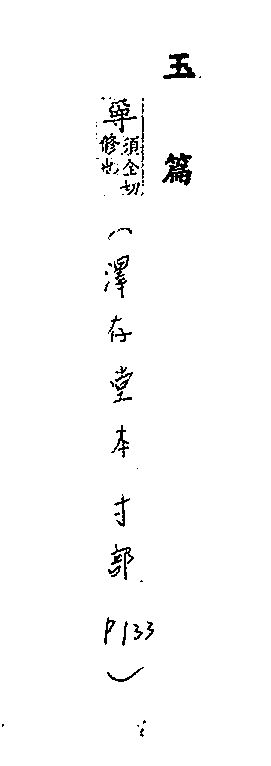 玉篇
須全切
修也
（澤存堂本寸部P133）